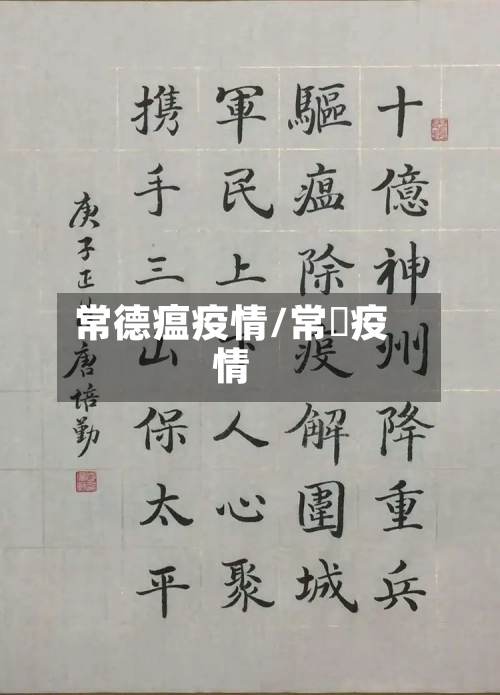 十億神州降重兵
驅瘟除疫解圍城
軍民上下人心聚
携手三山保太平
庚子正 唐培勤
常德瘟疫情/常▯疫
情